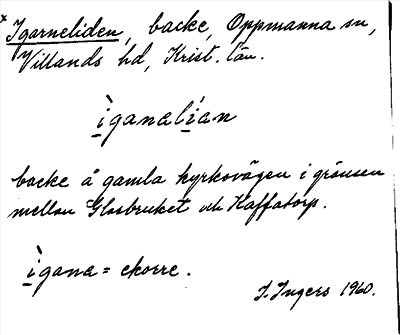 x Igarneliden, backe, Oppmanna sn,
Villands hd, Krist. län.
ìganalían
backe å gamla kyrkovägen i gränsen
mellan Glasbruket och Kaffatorp.
ìgana = ekorre.
I. Ingers 1960.